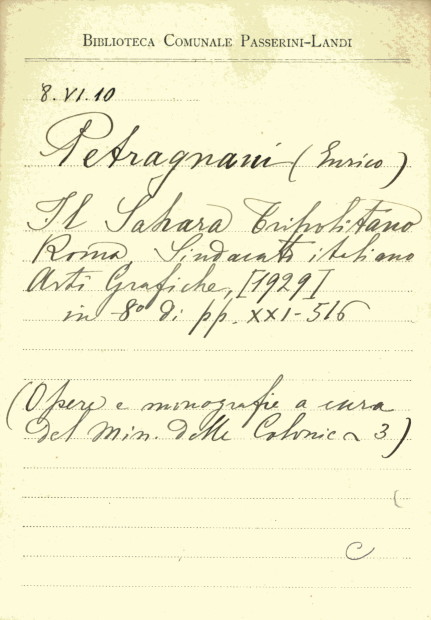 BIBLIOTECA COMUNALE PASSERINI-LANDI
8.VI.10
Petragnani (Enrico)
Il Sahara Tripolitano
Roma, Sindacato italiano
Arti Grafiche, [1929]
in-8° di pp. XXI-516
(Opere e monografie a cura
del Min. delle Colonie 3)
C